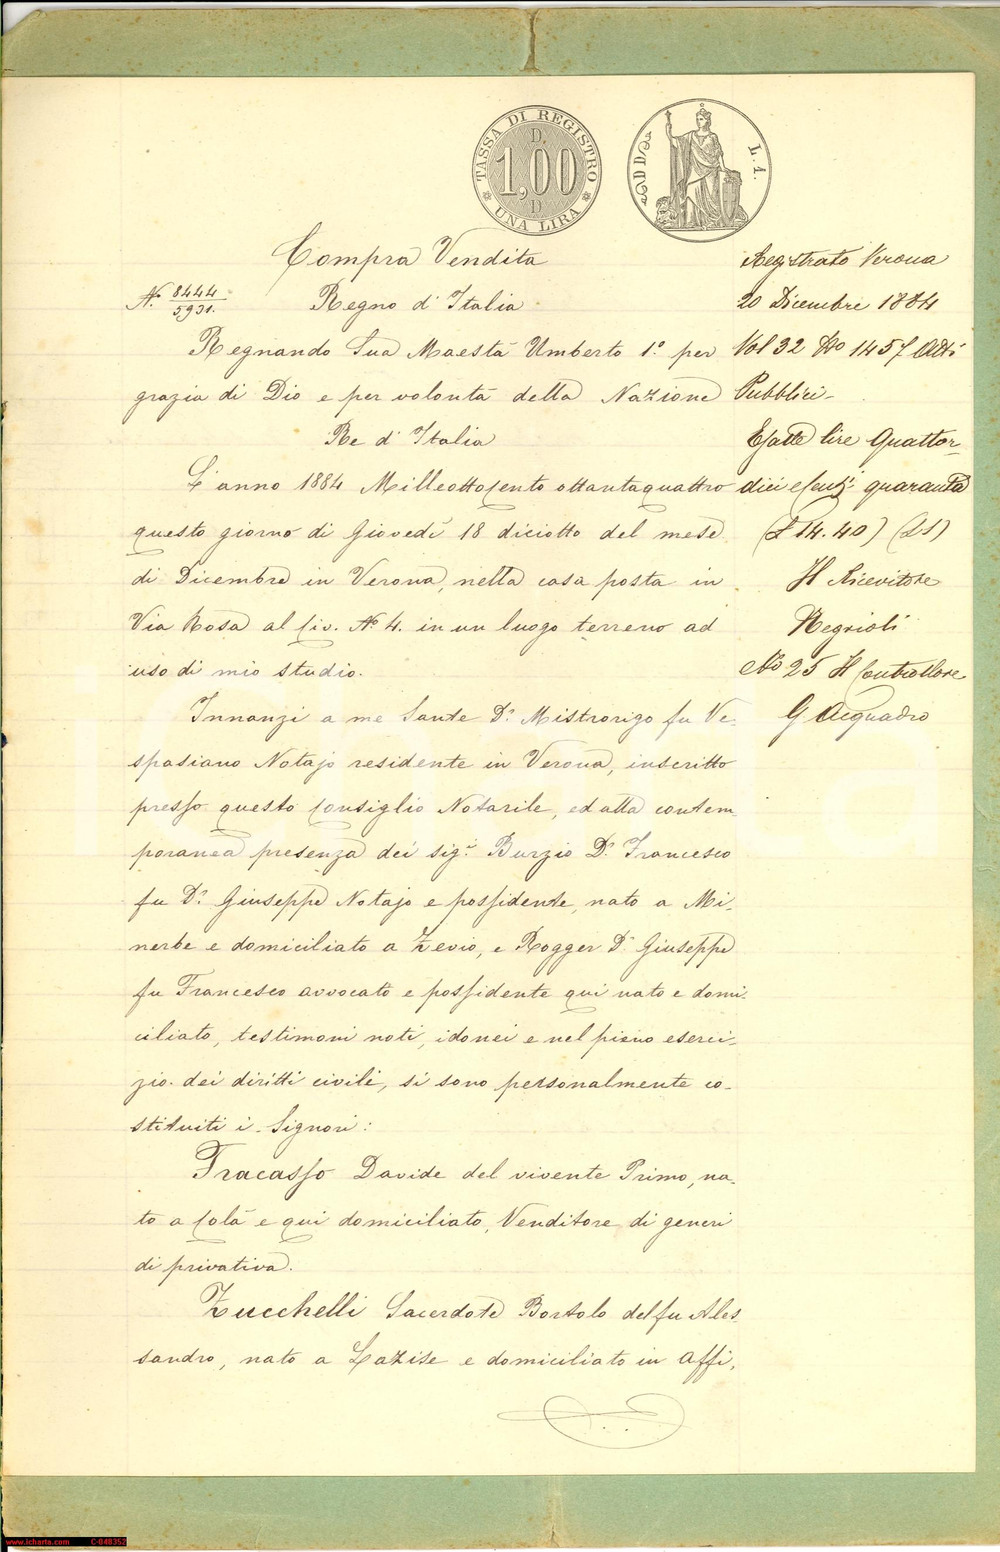 TASSA DI REGISTRO
D.
1,00
D
UNA LIRA
DD
L. 1.
Compra Vendita
N.° 8444/5931.
Regno d'Italia
Regnando Sua Maestà Umberto 1.° per
grazia di Dio e per volontà della Nazione
Re d'Italia
L'anno 1884 Milleottocento ottantaquattro
questo giorno di Giovedì 18 diciotto del mese
di Dicembre in Verona, nella casa posta in
Via Rosa al Civ. N.° 4. in un luogo terreno ad
uso di mio studio.
Innanzi a me Sante D.r Mistrorigo fu Ve-
spasiano Notajo residente in Verona, inscritto
presso questo Consiglio Notarile, ed alla contem-
poranea presenza dei sig.ri Burzio D.r Francesco
fu D.r Giuseppe Notajo e possidente, nato a Mi-
nerbe e domiciliato a Zevio, e Rogger D.r Giuseppe
fu Francesco avvocato e possidente qui nato e domi-
ciliato, testimoni noti, idonei e nel pieno eserci-
zio dei diritti civili, si sono personalmente co-
stituiti i Signori:
Fracasso Davide del vivente Primo, na-
to a Colà e qui domiciliato, Venditore di generi
di privativa.
Zucchelli Sacerdote Bortolo del fu Ales-
sandro, nato a Lazise e domiciliato in Affi,
Registrato Verona
20 Dicembre 1884
Vol 32 No 1457 Atti
Pubblici-
Esatte lire Quattor-
dici e Cent.i quaranta
(£ 14.40) (LS)
Il Ricevitore
No 25 Il Controllore
G Acquadro
www.icharta.com C-848352